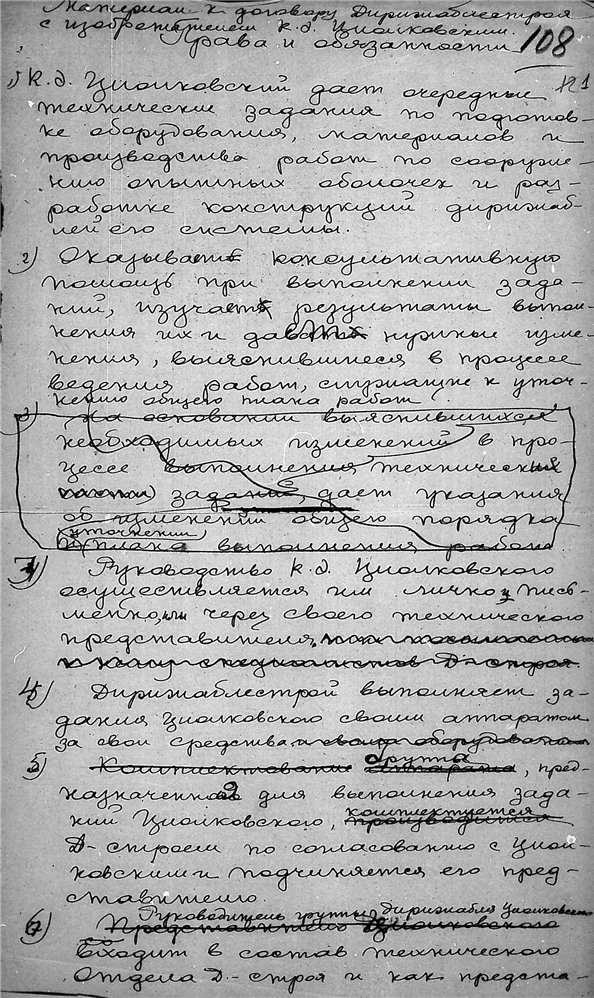 Материал к договору Дирижаблестроя
с изобретателем К.Э. Циолковским.
Права и обязанности
108
№1
1) К.Э. Циолковский дает очередные
технические задания по подготов-
ке оборудования, материалов и
производства работ по сооруже-
нию опытных оболочек и раз-
работке конструкций дирижаб-
лей его системы.
2) Оказывает консультативную
помощь при выполнении зада-
ний, изучает результаты выпол-
нения их и дает нужные изме-
нения, выяснившиеся в процессе
ведения работ, служащие к уточ-
нению общего плана работ.
3) На основании выяснившихся
необходимых изменений в про-
цессе выполнения технических
заданий, дает указания
об изменении общего порядка
уточнении
и плана выполнения работ
3) Руководство К.Э. Циолковского
осуществляется им лично и пись-
менно, или через своего технического
представителя
4) Дирижаблестрой выполняет за-
дания Циолковского своим аппаратом
за свои средства и свои оборудования
группа
5) Комплектование аппарата, пред-
назначенная для выполнения зада-
комплектуется
ний Циолковского, производится
Д-строем по согласованию с Циол-
ковским и подчиняется его пред-
ставителю.
Руководитель группы дирижабля Циолковского
6) Представитель Циолковского
входит в состав технического
Отдела Д-строя и как предста-